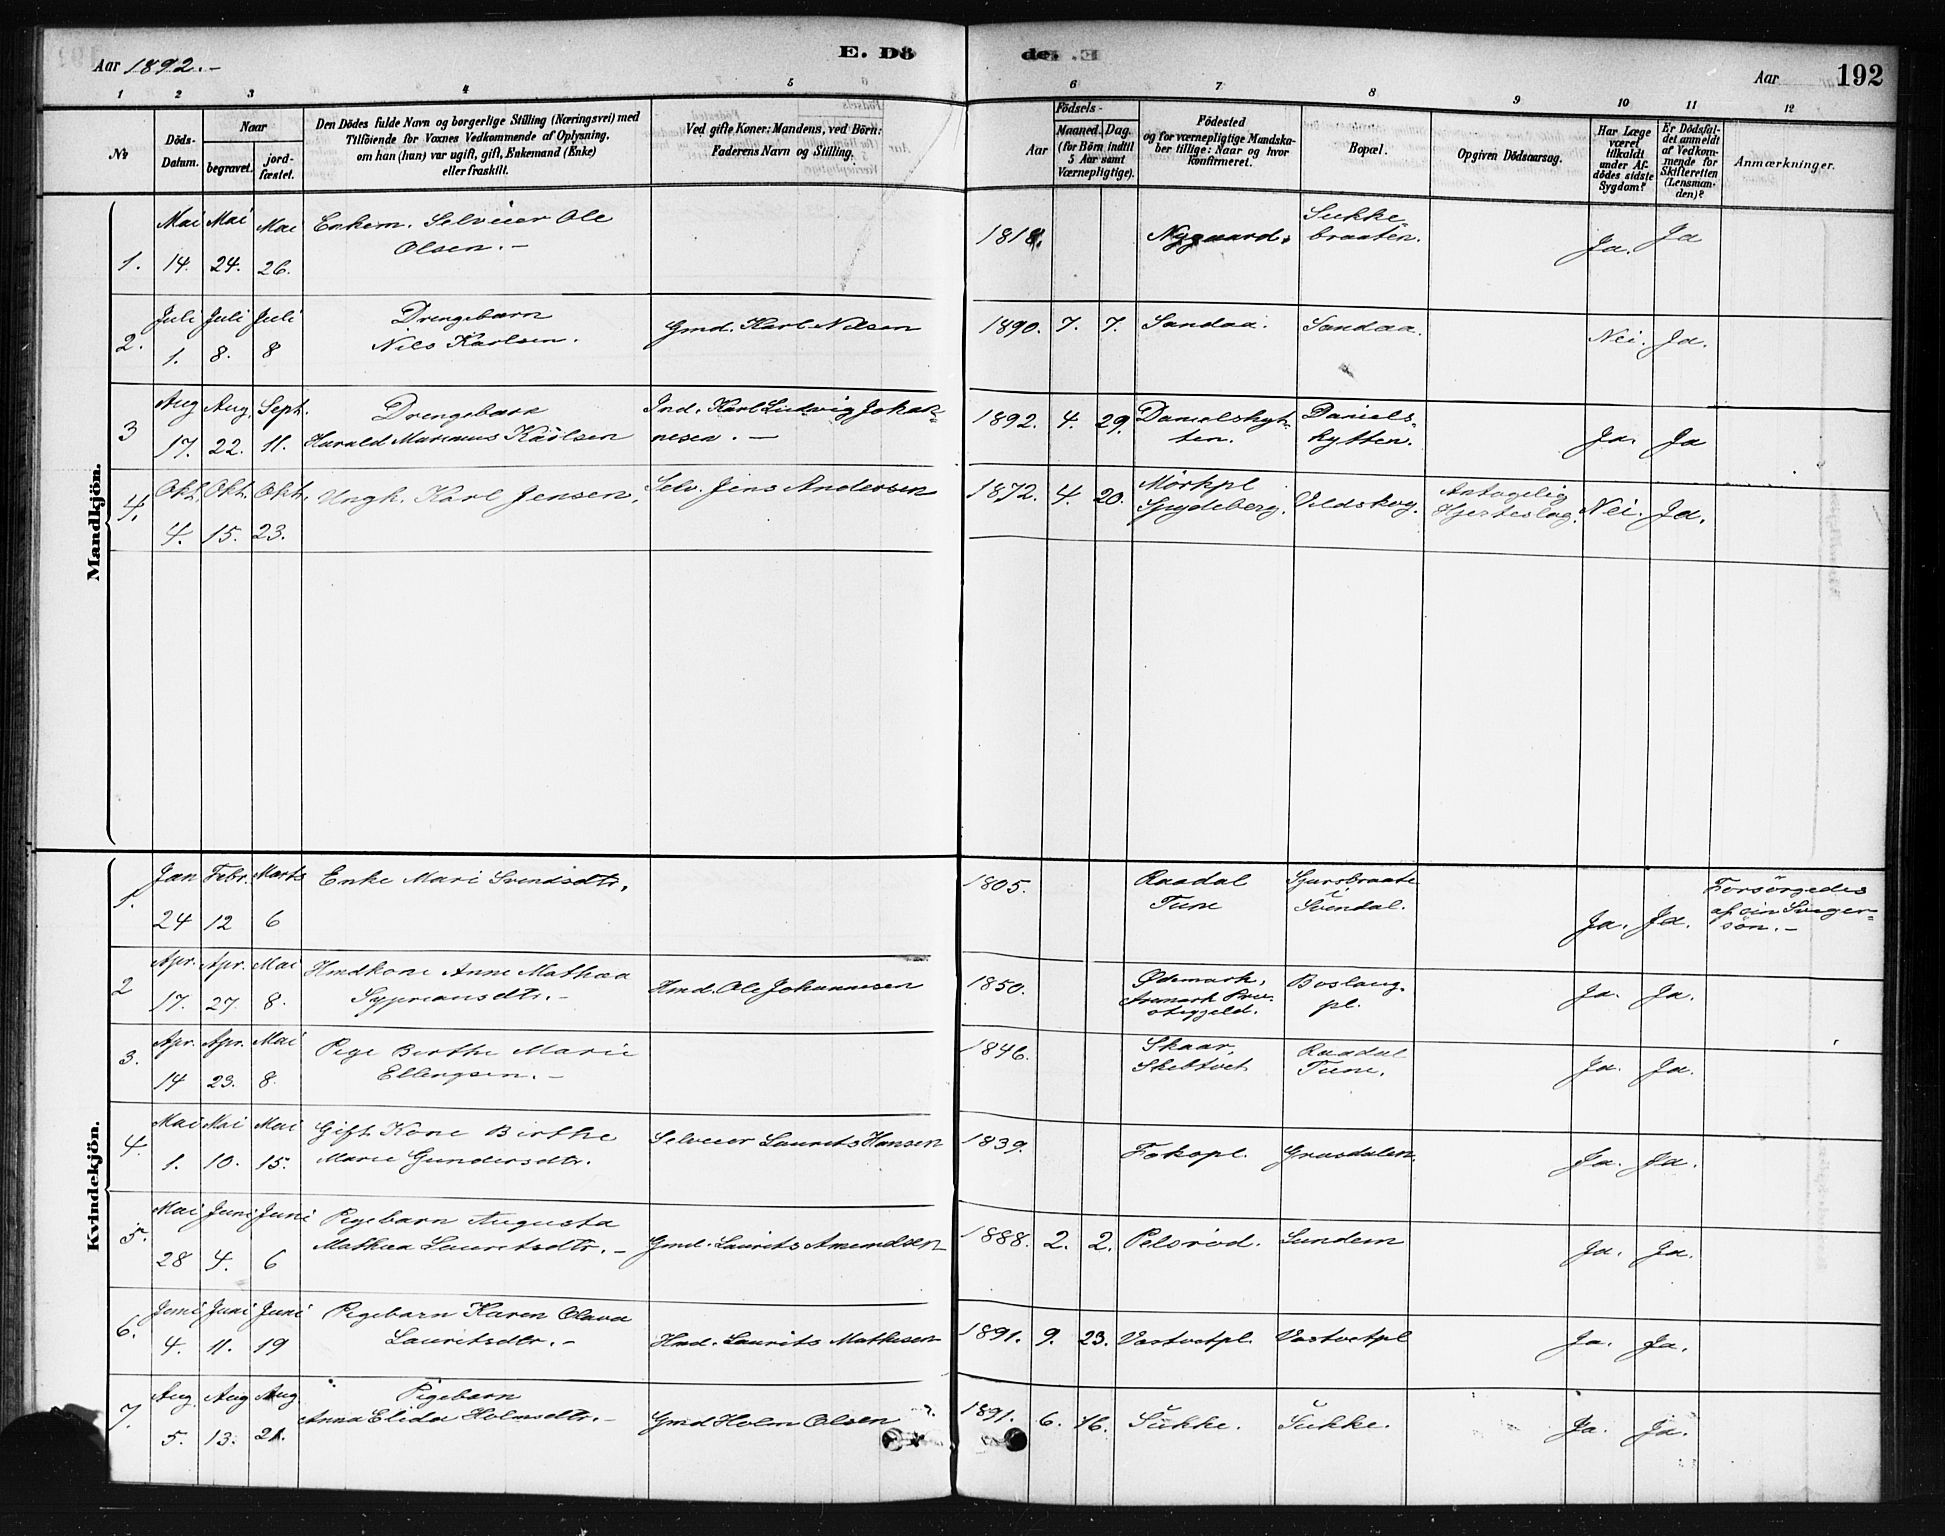 Aar 1892.-
E. Dö
de.
Aar
192
1 2 3 4 5 6 7 8 9 10 11 12
No
Döds-
Datum.
Naar
begravet.
jord-
fæstet.
Den Dödes fulde Navn og borgerlige Stilling (Næringsvei) med
Tilföiende for Voxnes Vedkommende af Oplysning,
om han (hun) var ugift, gift, Enkemand (Enke)
eller fraskilt.
Ved gifte Koner: Mandens, ved Börn:
Faderens Navn og Stilling.
Födsels-
Aar
Maaned. Dag.
(for Börn indtil
5 Aar samt
Værnepligtige).
Födested
og for værnepligtige Mandska-
ber tillige: Naar og hvor
konfirmeret.
Bopæl.
Opgiven Dödsaarsag.
Har Læge
været
tilkaldt
under Af-
dödes sidste
Sygdom?
Er Dödsfal-
det anmeldt
af Vedkom-
mende for
Skifteretten
(Lensman-
den)?
Anmærkninger.
Mandkjön.
1. Mai 14. Mai 24. Mai 26.
Enkem. Selveier Ole
Olsen.-
1818. Nygaard. Sukke
braaten. Ja. Ja
2. Juli 1. Juli 8. Juli 8
Drengebarn
Nils Karlsen.
Gmd. Karl Nilsen
1890. 7. 7. Sandaa. Sandaa. Nei. Ja.
3 Aug 17. Aug. 22. Sept. 11.
Drengebarn
Harald Marinius Karlsen
Ind. Karl Ludvig Johan-
nesen. -
1892. 4. 29. Danielshyt-
ten. Daniels-
hytten. Ja. Ja
4. Okt. 4. Okt. 15. Okt. 23.
Ungk. Karl Jensen.
Selv. Jens Andersen
1872. 4. 20. Mörkpl
Spydeberg. Vldskog. Antagelig
Hjerteslag. Nei. Ja.
Kvindekjön.
1. Jan 24 Febr. 12 Marts 6
Enke Mari Svendsdtr.
1805. Raadal
Tune Sjursbraate
i
Svindal. Ja. Ja. Forsörgedes
af sin Sviger-
sön.-
2 Apr. 17. Apr. 27. Mai 8.
Hmdkone Anne Mathea
Syprensdtr.-
Hmd. Ole Johannesen
1850. Ødemark,
Aremark Præ-
stegjeld. Boslang-
pl. Ja. Ja.
3. Apr. 14 Apr. 23. Mai 8.
Pige Berthe Marie
Ellingsen.-
1846. Skaar,
Skebtvet Raadal
Tune. Ja. Ja.
4. Mai 1. Mai 10. Mai 15.
Gift Kone Birthe
Marie Gundersdtr.
Selveier Laurits Hansen
1839. Fokopl. Grasdalen. Ja. Ja.
5. Mai 28 Juni 4. Juni 6
Pigebarn Augusta
Mathea Lauritsdtr.-
Gmd. Laurits Amundsen
1888. 2. 2. Pelsröd. Sundem Ja. Ja.
6. Juni 4. Juni 11. Juni 19
Pigebarn Karen Olava
Lauritsdtr.-
Hmd. Laurits Mathisen
1891. 9. 23. Vastvetpl. Vastvetpl Ja. Ja.
7. Aug. 5. Aug 13. Aug. 21.
Pigebarn
Anna Elida Holmsdtr.-
Gmd Holm Olsen
1891. 6. 16. Sukke. Sukke. Ja. Ja.